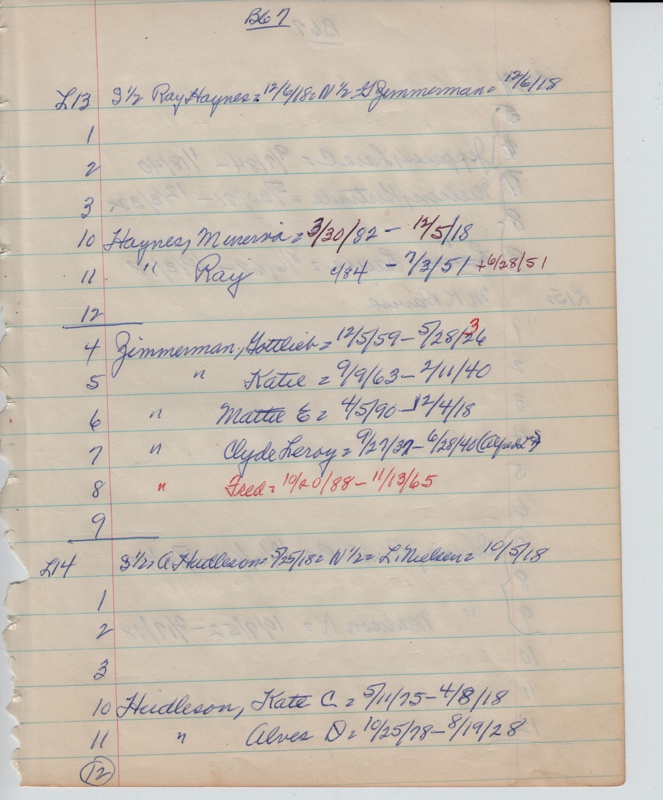 B67
L13 S 1/2 Ray Haynes = 12/6/18 = N 1/2 G Zimmerman = 12/6/18
1
2
3
10 Haynes, Minerva = 3/30/82 - 12/5/18
11 " Ray /84 - 7/3/51 + 6/28/51
12
4 Zimmerman, Gottlieb = 12/5/59 - 5/28/26 3
5 " Katie = 9/9/63 - 2/11/40
6 " Mattie E = 4/5/90 - 12/4/18
7 " Clyde Leroy = 9/27/37 - 6/28/40
8 " Fred = 10/20/88 - 11/13/65
9
L14 S 1/2 = A Hudleson = 5/25/18 = N 1/2 = L. Nielsen = 10/5/18
1
2
3
10 Hudleson, Kate C. = 5/11/75 - 4/8/18
11 " Alves D = 10/25/78 - 8/19/28
12